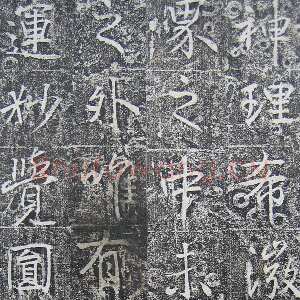 神理希微
累之中未
之外唯有
運妙覺圓